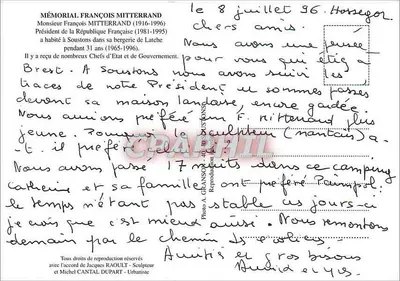 MÉMORIAL FRANÇOIS MITTERRAND
Monsieur François MITTERRAND (1916-1996)
Président de la République Française (1981-1995)
a habité à Soustons dans sa bergerie de Latche
pendant 31 ans (1965-1996).
Il y a reçu de nombreux Chefs d'Etat et de Gouvernement.
le 8 juillet 96. Hossegor
chers amis.
Nous avons une pensée
pour vous qui êtes à
Brest. A Soustons nous avons suivi les
traces de notre Président nous sommes passés
devant sa maison landaise, encore gardée.
Nous aurions préféré un F. Mitterrand plus
jeune. Pourquoi le sculpteur (nantais) a-
t-il préféré
Nous avons passé 17 nuits dans ce camping
Catherine et sa famille ont préféré Paimpol.
le temps n'étant pas stable ces jours-ci
je crois que c'est mieux ainsi. Nous remontons
demain par le chemin des écoliers.
Amitiés et gros bisous
Photo A. GRANSON
GRAPHIL
Tous droits de reproduction réservés
avec l'accord de Jacques RAOULT - Sculpteur
et Michel CANTAL DUPART - Urbaniste